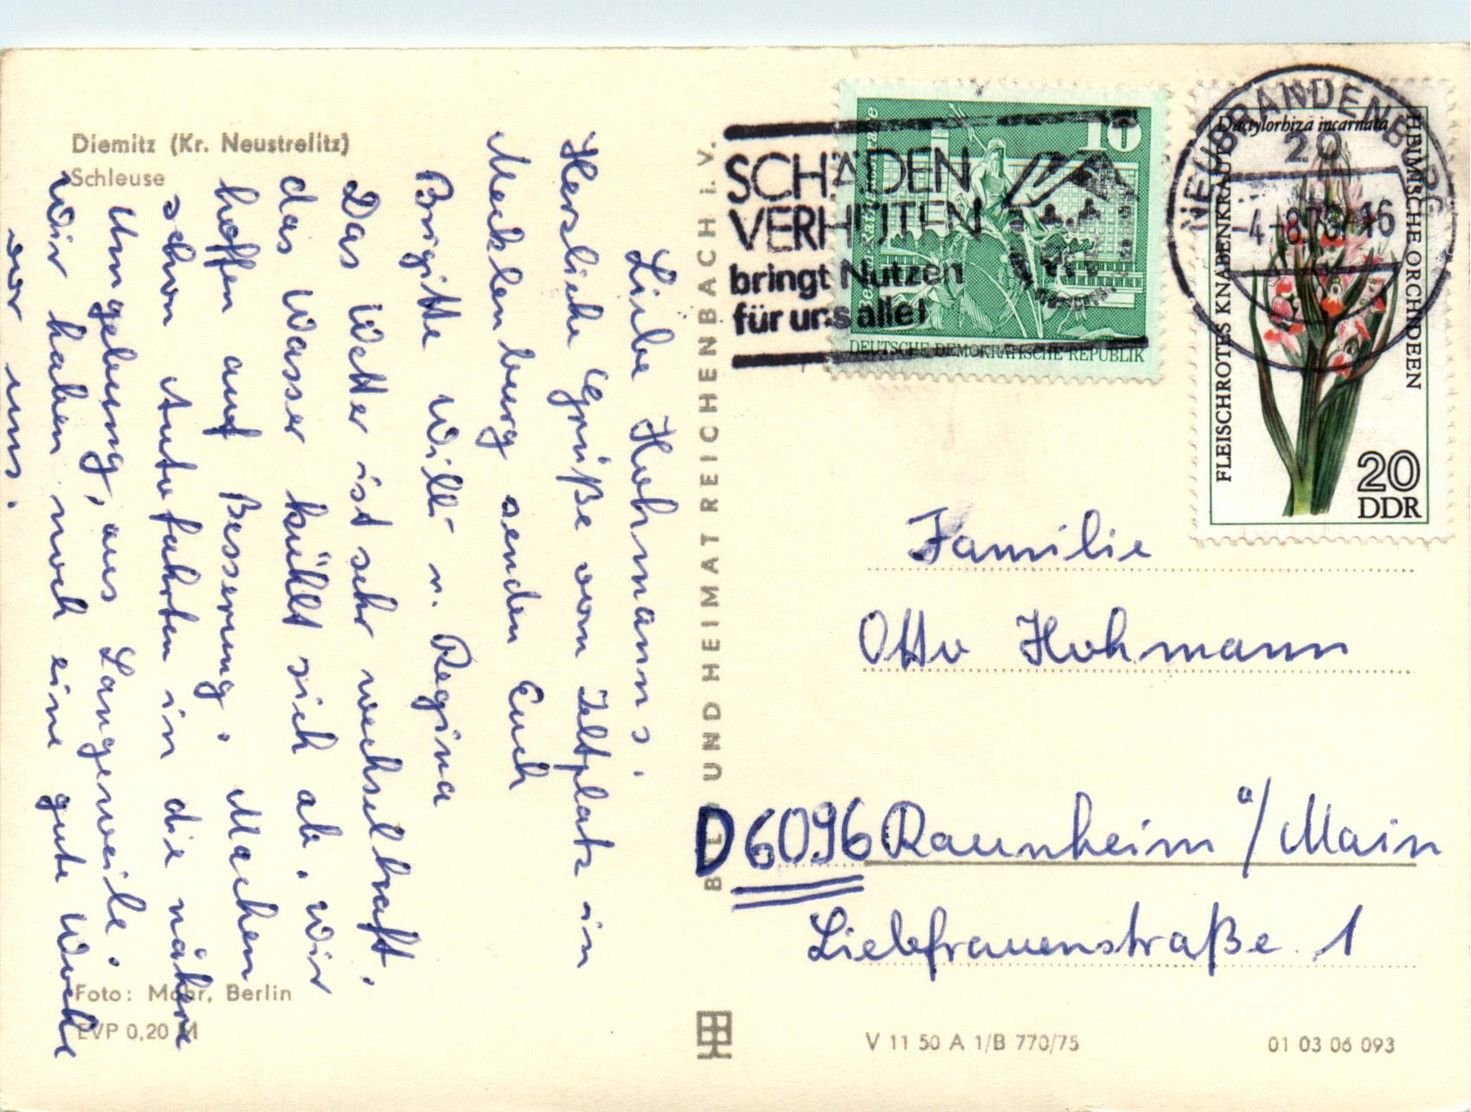 Diemitz (Kr. Neustrelitz)
Schleuse
Liebe Hohmanns!
Herzliche Grüße vom Zeltplatz in
Mecklenburg senden Euch
Brigitte Willi u. Regina
Das Wetter ist sehr wechselhaft.
das Wasser kühlt sich ab. Wir
hoffen auf Besserung. Machen
schon Autofahrten in die nähere
Umgebung, aus Langeweile.
Wir haben noch eine gute Woche
vor uns.
Foto: Mohr, Berlin
EVP 0,20 M
BILD UND HEIMAT REICHENBACH i. V.
SCHÄDEN
VERHÜTEN
bringt Nutzen
für uns alle!
10
DEUTSCHE DEMOKRATISCHE REPUBLIK
NEUBRANDENBURG
20
-4.-8.76-16
Dactylorhiza incarnata
HEIMISCHE ORCHIDEEN
FLEISCHROTES KNABENKRAUT
20
DDR
Familie
Otto Hohmann
D 6096 Raunheim a/Main
Liebfrauenstraße 1
V 11 50 A 1/B 770/75
01 03 06 093